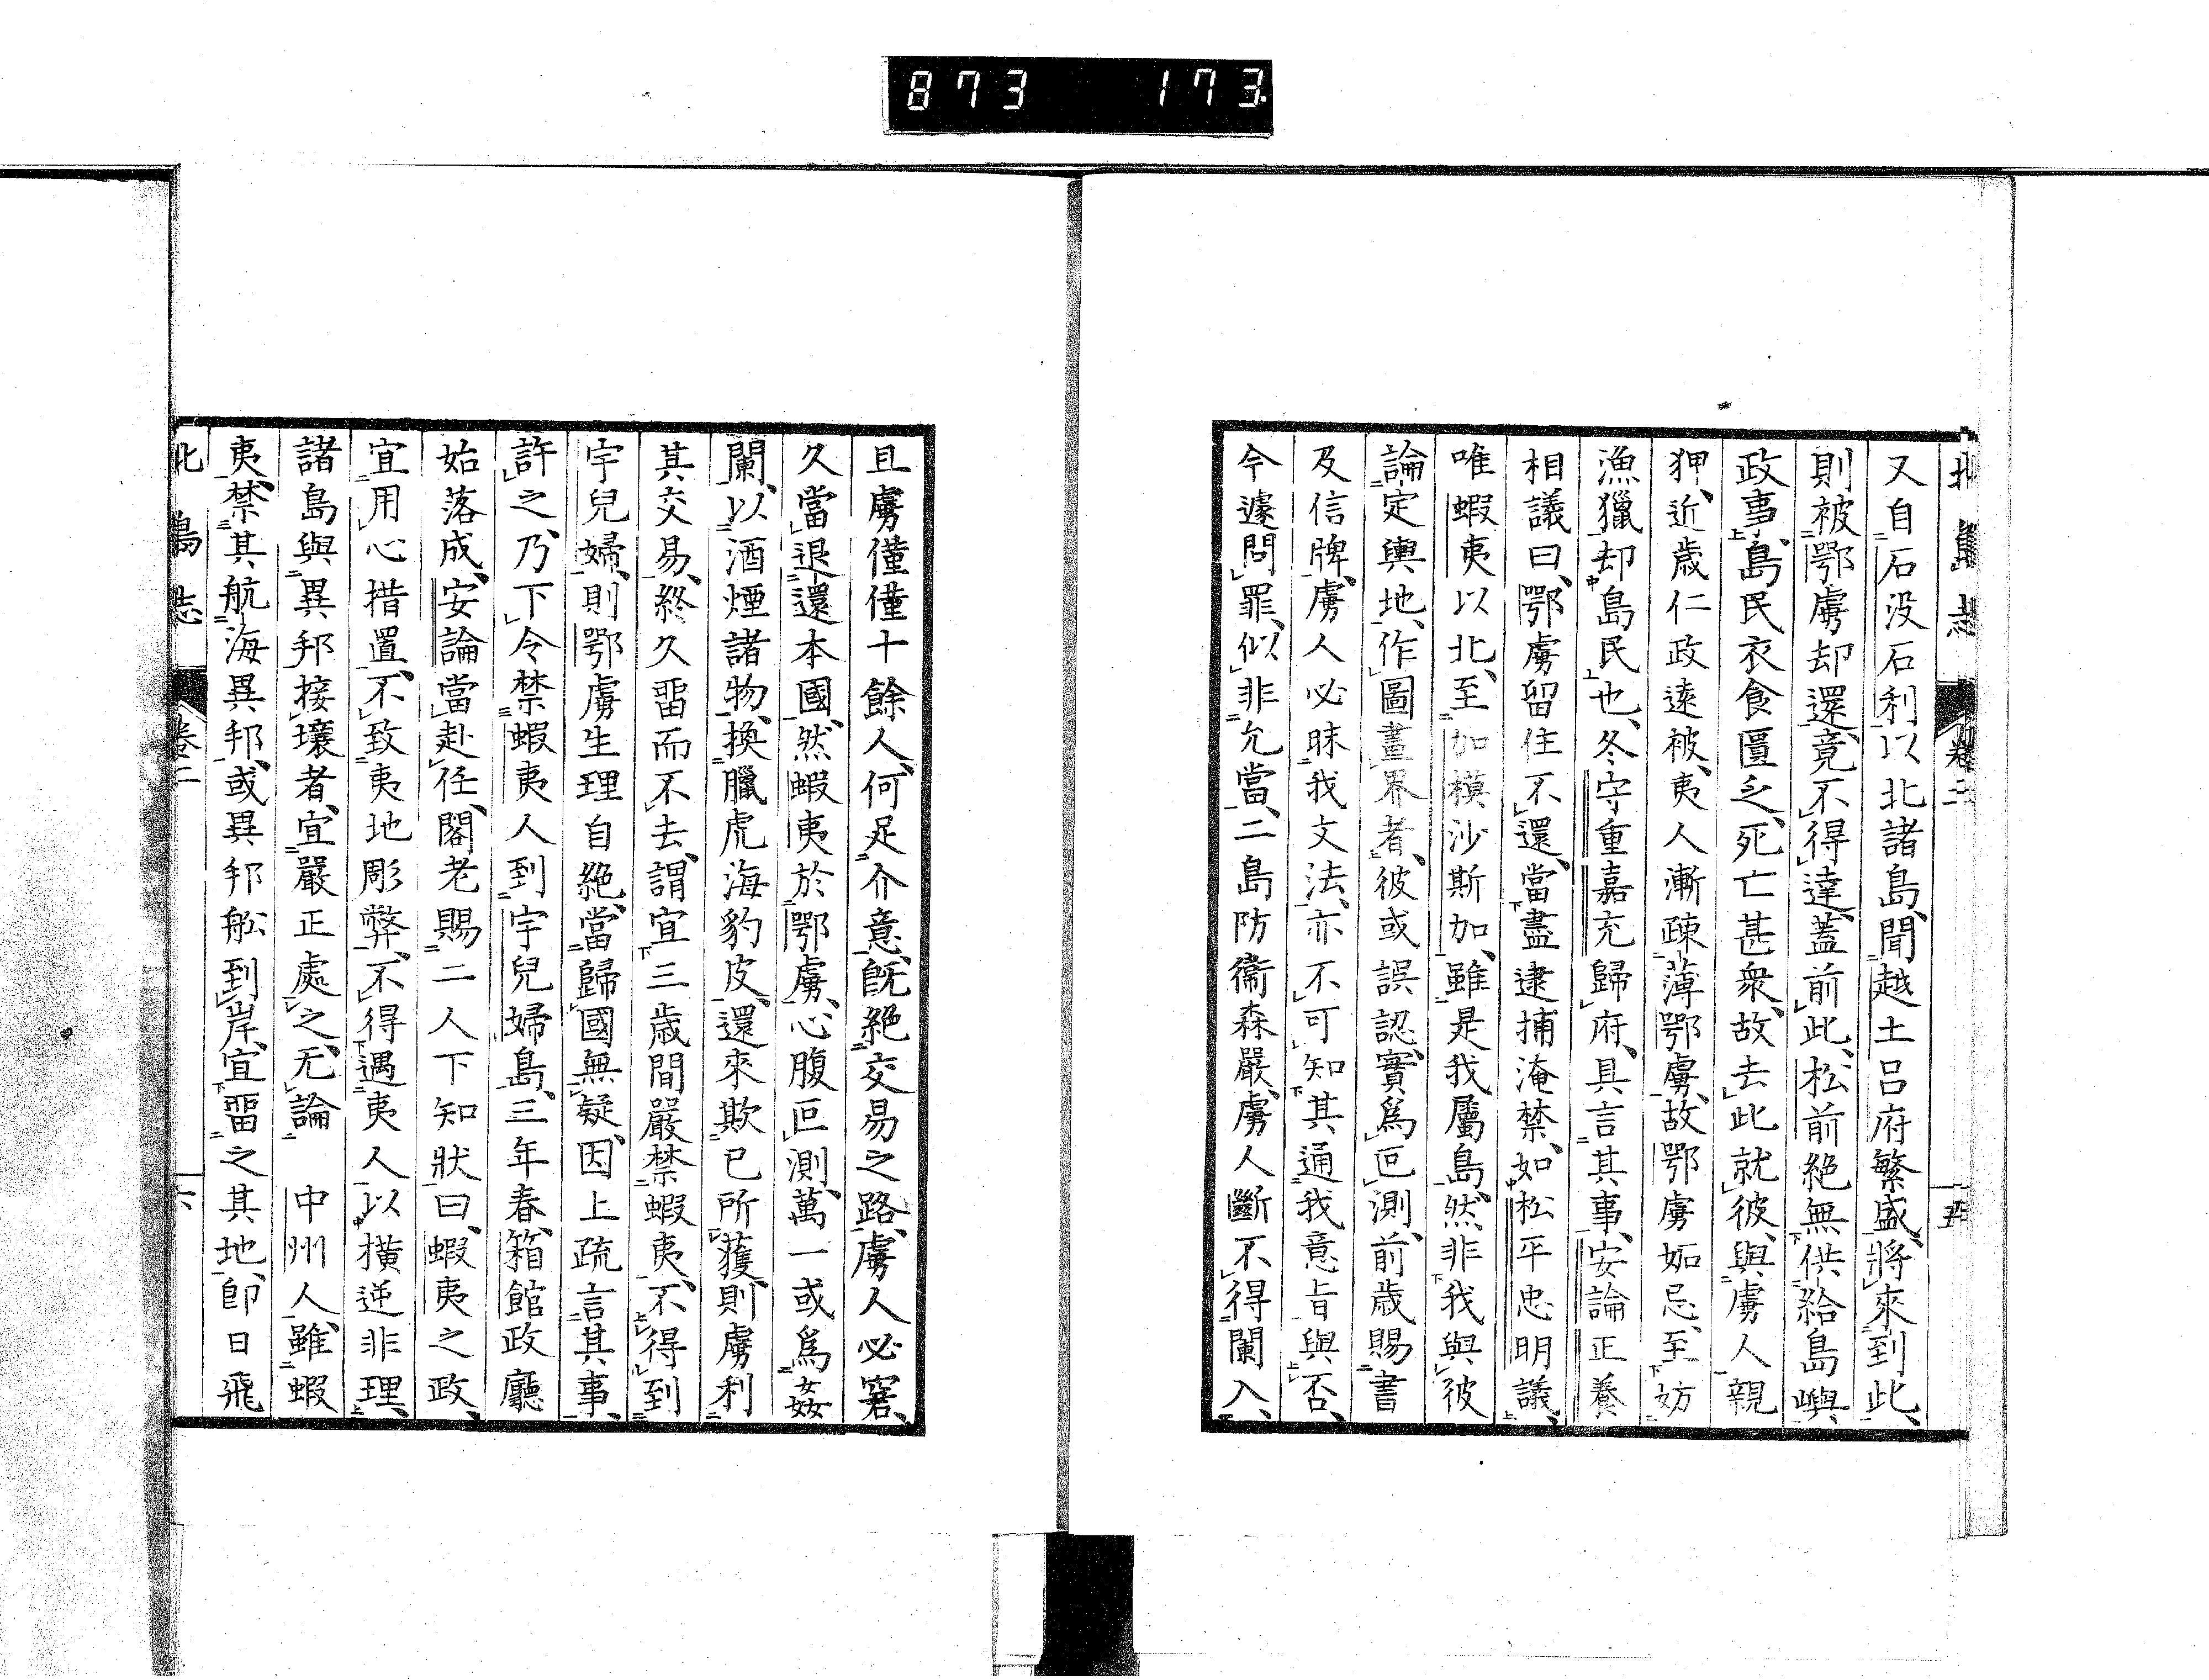 873 173
北島志 卷二 五
又自石没石利以北諸島、聞越土呂府繁盛、將來到此、
則被鄂虜却還、竟不得達、蓋前此、松前絶無供給島嶼
政事、島民衣食匱乏、死亡甚衆、故去此就彼、與虜人親
狎、近歳仁政遠被、夷人漸疎薄鄂虜、故鄂虜妬忌、至妨
漁獵却島民也、冬守重嘉充歸府、具言其事、安論正養
相議曰、鄂虜留住不還、當盡逮捕淹禁、如松平忠明議、
唯蝦夷以北、至加模沙斯加、雖是我屬島、然非我與彼
論定輿地、作圖畫界者、彼或誤認、實爲叵測、前歳賜書
及信牌、虜人必昧我文法、亦不可知其通我意旨與否、
今遽問罪、似非允當、二島防衞森嚴、虜人斷不得闌入、
且虜僅僅十餘人、何足介意、既絶交易之路、虜人必窘、
久當退還本國、然蝦夷於鄂虜、心腹叵測、萬一或爲姦
闌、以酒煙諸物、換臘虎海豹皮、還來欺已所獲、則虜利
其交易、終久畱而不去、謂宜三歳間嚴禁蝦夷、不得到
宇兒婦、則鄂虜生理自絶、當歸國無疑、因上疏言其事、
許之、乃下令禁蝦夷人到宇兒婦島、三年春、箱館政廳
始落成、安論當赴任、閣老賜二人下知狀曰、蝦夷之政、
宜用心措置、不致夷地彫弊、不得遇夷人以横逆非理、
諸島與異邦接壤者、宜嚴正處之、无論 中州人、雖蝦
夷、禁其航海異邦、或異邦船到岸、宜畱之其地、卽日飛
北島志 卷二 六